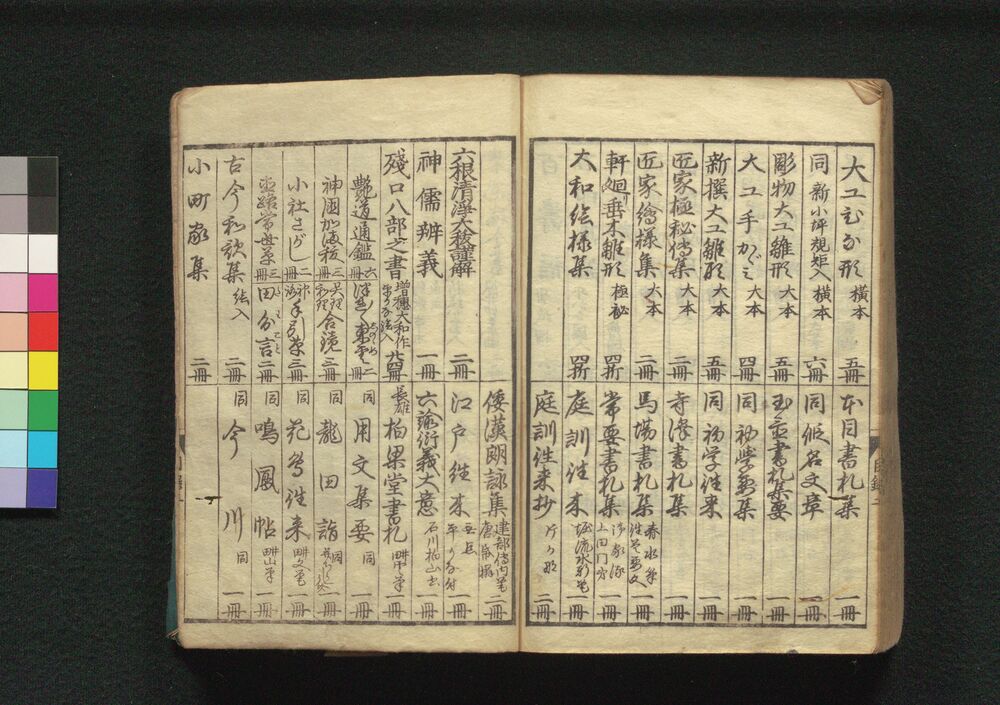 大工ひな形 横本 五冊
同 新小坪規矩入 横本 六冊
彫物大工雛形 大本 五冊
大工手かゞミ 大本 四冊
新撰大工雛形 大本 五冊
匠家極秘傳集 大本 二冊
匠家繪様集 大本 二冊
軒廻垂木雛形 極秘 四折
大和絵様集 四折
本目書札集 一冊
同假名文章 一冊
玉金書札集要 一冊
同初学要集 一冊
同初学往来 一冊
寺澤書札集 一冊
馬場書札集 一冊
常要書札集 一冊
庭訓往来 一冊
庭訓往来抄 二冊
六根清浄大祓講解 二冊
神儒辨義 一冊
殘口八部之書 増穂大和作
艶道通鑑 六冊
神國加魔祓 三冊
小社さがし 二冊
直路常世草 三冊
合鏡 三冊
手引草 三冊
田分言 二冊
古今和歌集 絵入 二冊
小町家集 二冊
倭漢朗詠集 建部傳内筆 二冊
江戸往来 一冊
六諭衍義大意 石川柏山書 一冊
長雄 柏梁堂書札 一冊
同 用文集要 同 一冊
同 龍田詣 同 一冊
同 花鳥往来 一冊
同 鳴鳳帖 一冊
同 今川 同 一冊